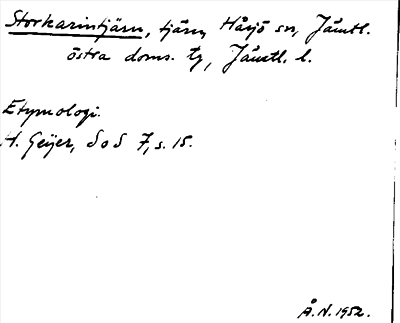 Storkarintjärn, tjärn, Håsjö sn, Jämtl.
östra doms. tg, Jämtl. l.
Etymologi.
H. Geijer, SoS 7, s. 15.
Å.N. 1952.